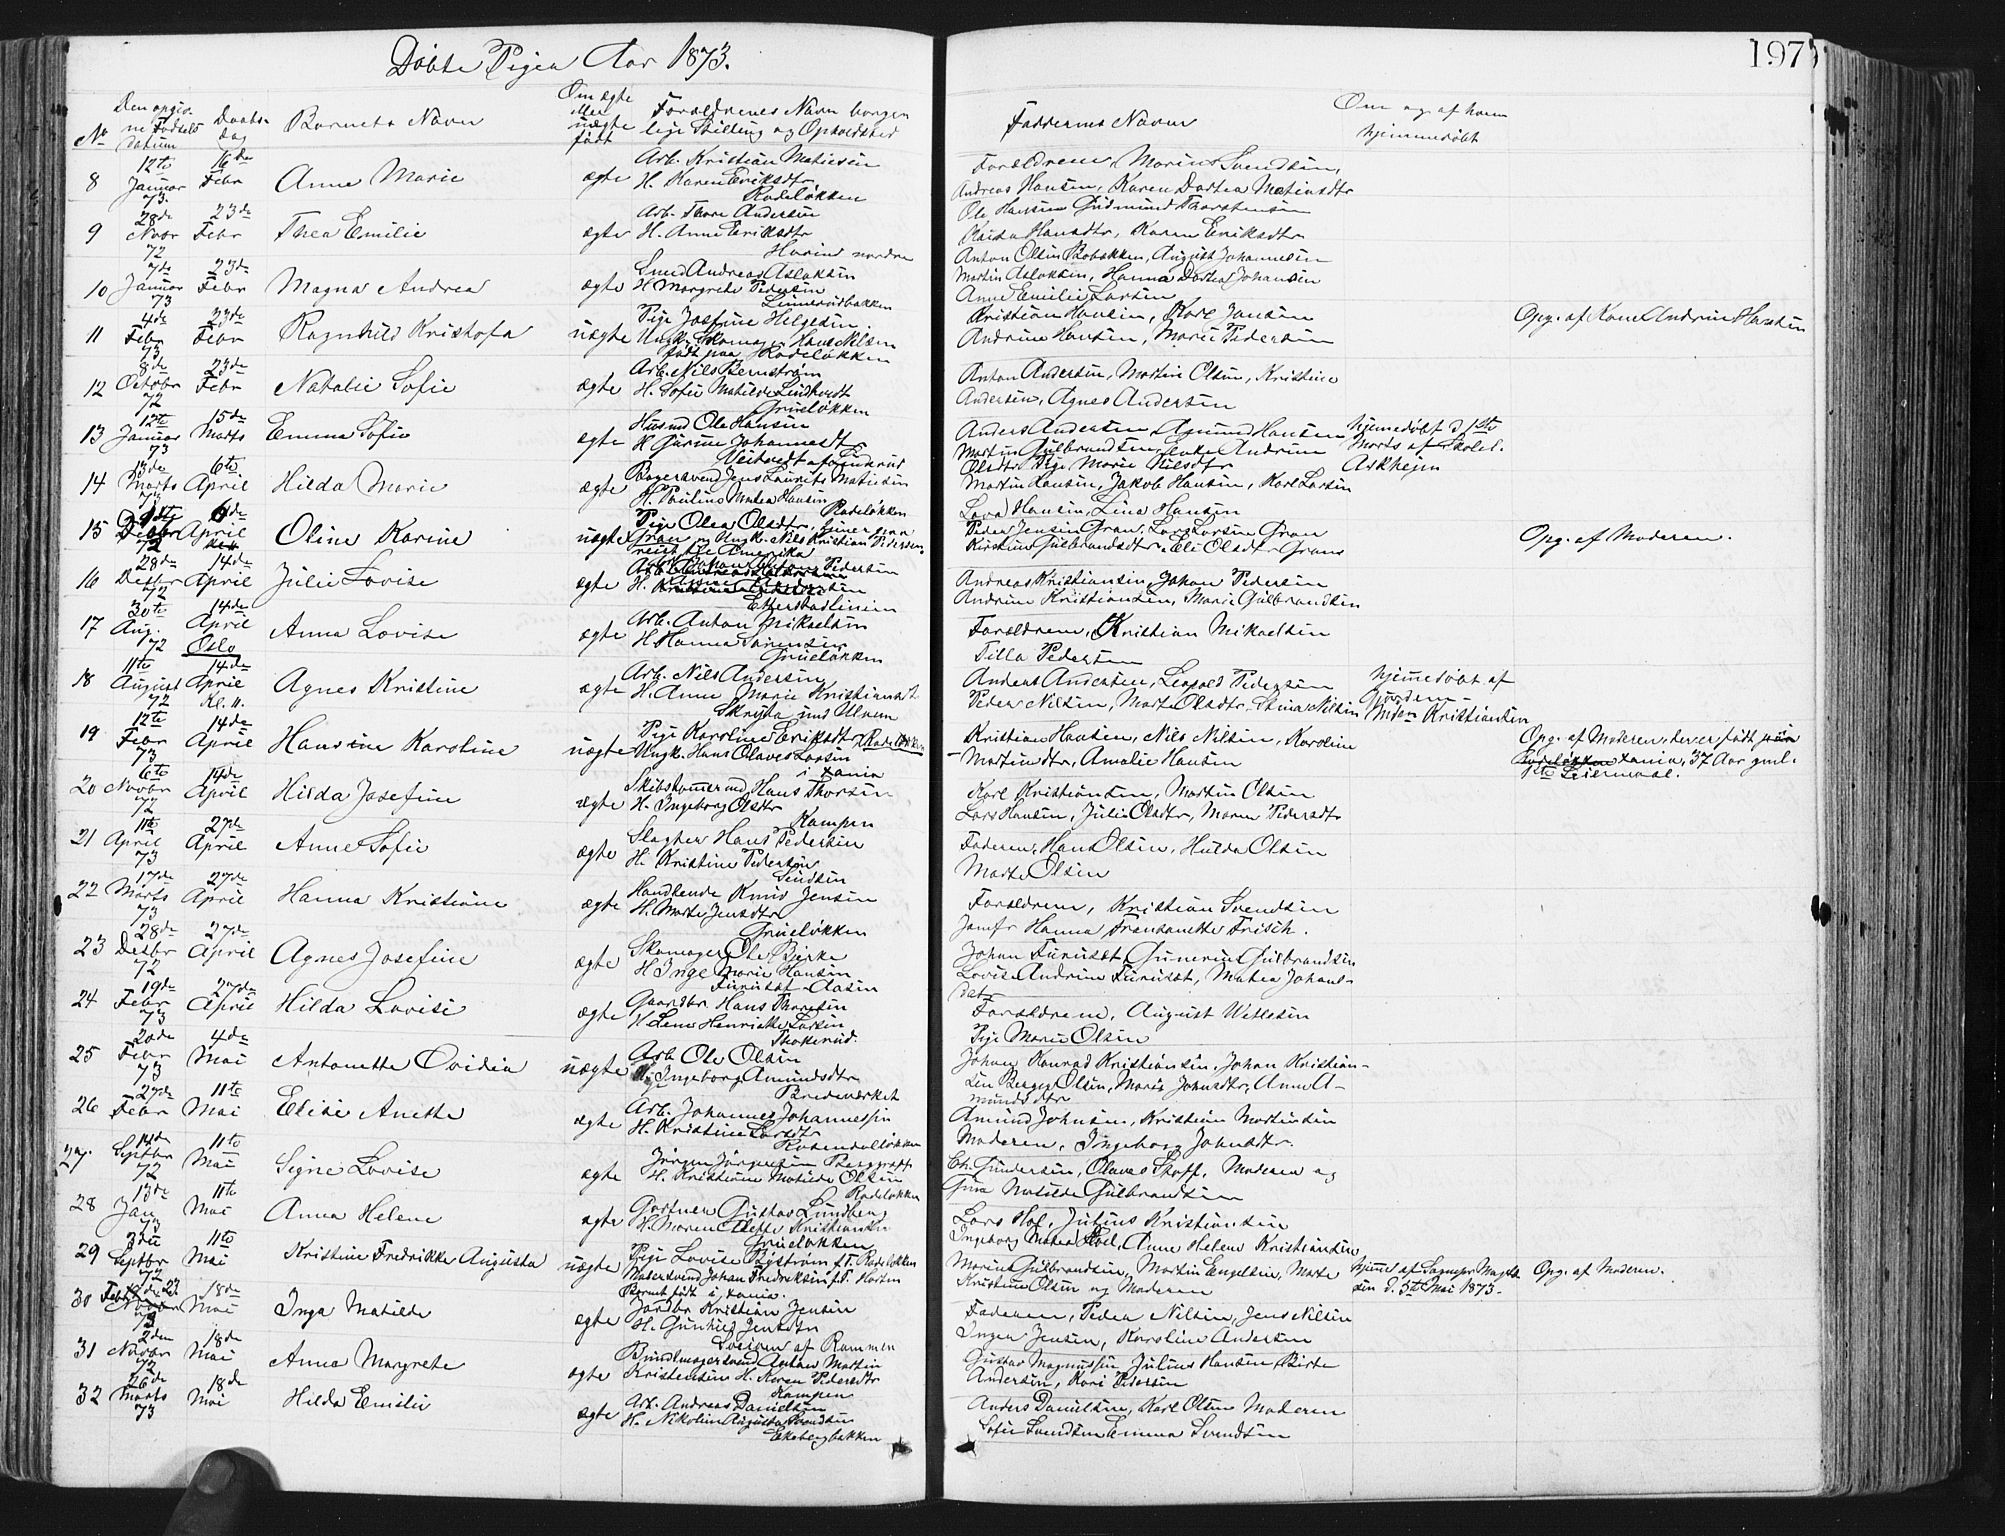 Døbte Piger Aar 1873.
197
No
Den opgiv-
ne Fødsels
datum
Daabs-
dag
Barnets Navn
Om ægte
eller
uægte
født
Forældrenes Navn borger
lige Stilling og Opholdsted
Faddernes Navne
Om og af hvem
hjemmedøbt
8 12te Januar 73. 16de Febr Anne Marie ægte
Arb. Kristian Matiesen
H. Karen Eriksdtr
Rodeløkken
Forældrene, Marius Svendsen,
Andreas Hansen, Karen Dortea Matiesdtr
9 28de Novbr 72 23de Febr Thea Emilie ægte
Arb. Thore Andersen
H. Anne Eriksdtr
nordre
Ole Hansen Gudmund Thorstensen
Hansdtr, Karen Eriksdtr
10 7de Januar 73 23de Febr Magna Andrea ægte
Smed Andreas Aslaksen
H. Margrete Pedersen
Anton Olsen Bobakken, August Johannesen
Martin Aslaksen, Hanna Dortea Johansen
Anne Emilie Larsen
11 4de Febr 73 23de Febr Ragnhild Kristofa uægte
Pige Josefine Helgesen
Ungk. Skomager Hans Nilsen
født paa Rodeløkken
Kristian Hansen, Karl Jansen
Andrine Hansen, Marie Pedersen
Opg. af Kone Andrine Hansen
12 8de Octobr 72 23de Febr Natalie Sofie ægte
Arb. Nils Bernstrøm
H. Sofie Matilde Lindkvist
Grüneløkken
Anton Andersen, Martin Olsen, Kristine
Andersen, Agnes Andersen
13 12te Januar 73 15de Marts Emma Sofie ægte
Husmd Ole Hansen
H. Gurine Johannesdtr
Anders Andersen, Amund Hansen
Martin Gulbrandsen, Enke Andrine
Olsdtr Pige Marie Nilsdtr
hjemmedøbt d 1ste
Marts af Skolel.
Askhejm
14 13de Marts 73 6te April Hilda Marie ægte
Bagersvend Jens Laurits Matiesen
H. Pauline Matea Hansen
Rodeløkken
Martin Hansen, Jakob Hansen, Karl Larsen
Lova Hansen, Lina Hansen
15 72 April Oline Karine uægte
Pige Olea Olsdtr,
Gran og Ungk. Nils Kristian Pedersen
reist til Amerika
Peder Jensen Gran, Lars Larsen Gran
Kirstine Gulbrandsdtr, Eli Olsdtr Grans
Opg. af Moderen.
16 28de Desbr 72 14de April Julie Lovise ægte
Arb. Johan Anton Pedersen
H.
Etterstadlinien
Andreas Kristiansen, Johan Pedersen
Andrine Kristiansen, Marie Gulbrandsen
17 30te Aug. 72 14de April Oslo Anna Lovise ægte
Arb. Anton Mikaelsen
H Hanna Sørensen
Grüneløkken
Forældrene, Kristian Mikaelsen
Tilla Pedersen
18 11te August 72 14de April Kl. 11. Agnes Kristine ægte
Arb. Nils Andersen
H. Anne Marie Kristiansdt
Anders Andersen, Leopold Pedersen
Peder Nilsen, Marte Olsdtr, Stina Nilsen
hjemmedøbt af
Kristiansen
19 12te Febr 73 14de April Hansine Karoline uægte
Pige Karoline Eriksdtr Rodeløkken
Ungk. Hans Olaves Larsen
i Xania
Kristian Hansen, Nils Nilsen, Karoline
Martinsdtr, Amalie Hansen
Opg. af Moderen, der er født
Xania, 37 Aar gml.
1ste Leiermaal.
20 6te Novbr 72 14de April Hilda Josefine ægte
Skibstømmermd Hans Thorsen
H. Ingeborg Olsdtr
Kampen
Karl Kristiansen, Martin Olsen
Lars Hansen, Julie Olsdtr, Maren Pedersdtr
21 11te April 73 27de April Anne Sofie ægte
Slagter Hans Pedersen
H. Kristine Pedersen
Faderen, Hans Olsen, Hulda Olsen
Marte Olsen
22 17de Marts 73 27de April Hanna Kristiane ægte
Handlende Knud Jensen
H. Marte Jensdtr
Grüneløkken
Forældrene, Kristian Svendsen
Jomfr Hanna Fransanette Frisch.
23 28de Desbr 72 27de April Agnes Josefine ægte
Skomager Ole Bjerke
H Inge Marie Hansen
Furuset
Johan Furuset, Gunerius Gulbrandsen
Lovise Andrine Furuset, Matea Johans-
datr
24 19de Febr 73 27de April Hilda Lovise ægte
Gaardbr Hans Thoresen
H Lene Henriette Larsen
Forældrene, August Wetlesen
Pige Marie Olsen
25 20de Febr 73 4de Mai Antonette Ovidia uægte
Arb Ole Olsen
Ingeborg Amundsdtr
Johan Konrad Kristiansen, Johan Kristian-
sen Berger Olsen, Marie Johnsdtr, Anne A-
mundsdtr
26 27de Febr 11te Mai Elise Anette ægte
Arb. Johannes Johannessen
H. Kristine Larsdtr
Rosendalløkken
Amund Johnsen, Kristian Martinsen
Moderen, Ingeborg Johnsdtr.
27. 14de Septbr 72 11te Mai Signe Lovise ægte
Jørgen Jørgensen Berggraff
H. Kristiane Matilde Olsen
Rodeløkken
Ch. Gundersen, Olaves Skoff, Moderen og
Gina Matilde Gulbrandsen
28 13de Jan 73 11te Mai Anna Helene ægte
Gartner Gustav Lundberg
H. Maren Elette Kristiansen
Grüneløkken
Lars Hol, Julius Kristiansen
Ingeborg Matea Hoel, Anne Helene Kristiansen
29 Septbr 72 11te Mai Kristine Fredrikke Augusta uægte
Pige Lovise Bystrøm f.T. Rodeløkken
Johan Fredriksen f.T. Horten
Barnet født i Xania.
Marius Gulbrandsen, Martin Engelsen, Marte
Kristine Olsen og Moderen
hjemd af Magda-
sen d. 5te Mai 1873.
Opg. af Moderen.
30 73 18de Mai Inga Matilde ægte
Jordbr Kristian Jensen
H. Gunhild Jensdtr
Faderen, Peder Nilsen, Jens Nilsen
Inger Jensen, Karoline Andersen
31 2den Novbr 72 18de Mai Anna Margrete ægte
Bundtmagersvend Anton Martin
Kristensen H. Karen Pedersdtr
Kampen
Gustav Magnussen Julius Hansen, Birte
Andersen, Kari Pedersen
32 26de Marts 73 18de Mai Hilda Emilie ægte
Arb. Andreas Danielsen
H. Nikoline Augusta Svendsen
Ekebergbakken
Anders Danielsen, Karl Olsen Moderen
Sofie Svendsen Emma Svendsen